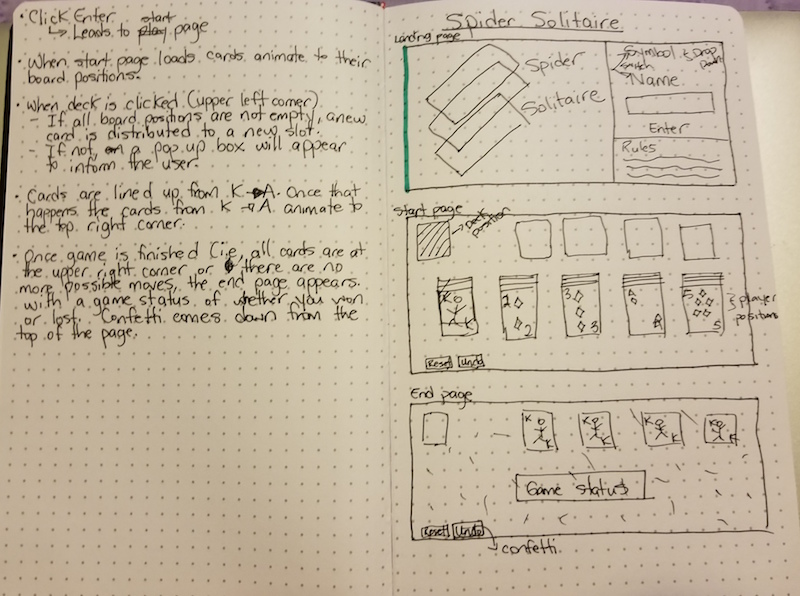 • Click Enter
↳ Leads to start page
• When start page loads cards animate to their
board positions.
• When deck is clicked (upper left corner)
- If all board positions are not empty, a new
card is distributed to a new slot.
- If not, a pop up box will appear
to inform the user.
• Cards are lined up from K → A. Once that
happens the cards from K → A animate to
the top right corner.
• Once game is finished (i.e, all cards are at
the upper right corner or there are no
more possible moves, the end page appears.
with a game status of whether you won
or lost. Confetti comes down from the
top of the page.
Spider Solitaire
Landing page
Spider
Solitaire
Symbol
Switch
Drop
Down
Name
Enter
Rules
Start page
Deck
position
K
K
2
2
3
3
A
A
5
5
player
positions
Reset Undo
End page
K K K K
K K K K
Game status
Reset Undo
→ confetti